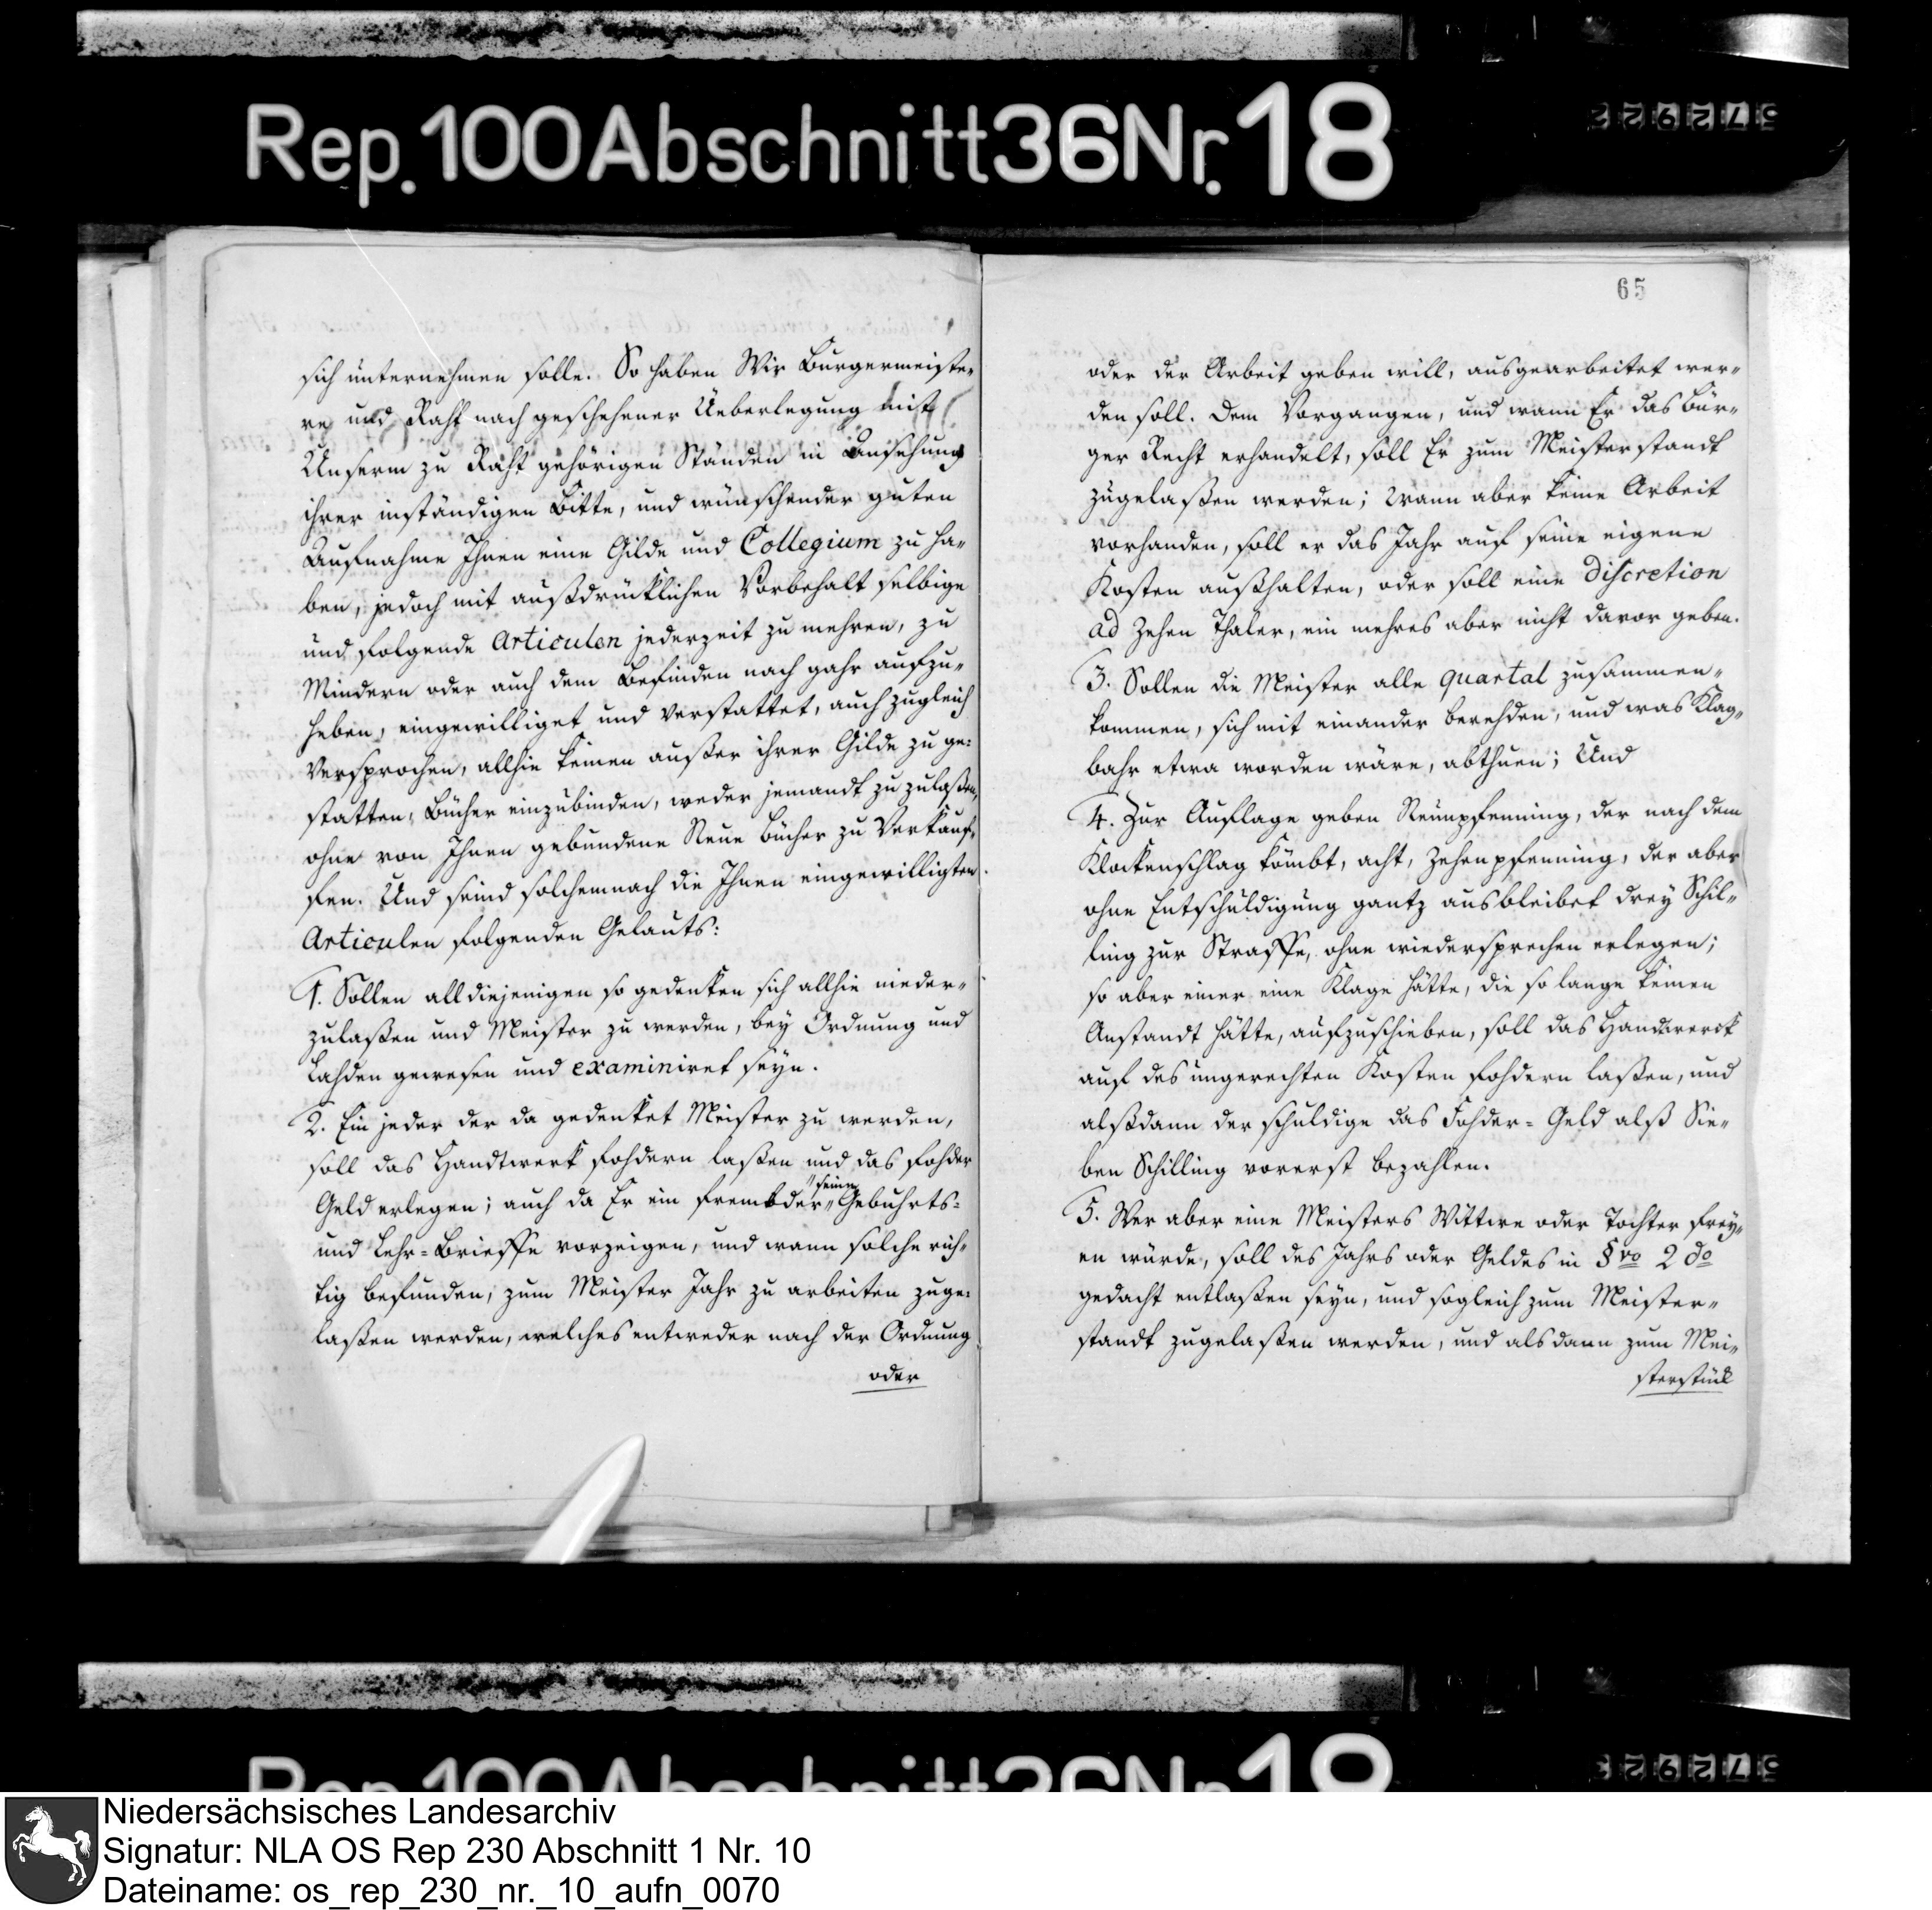 Rep. 100 Abschnitt 36 Nr. 18
sich unternehmen solle. So haben Wir Burgermeiste„
re und Raht nach geschehener Ueberlegung mit
Unserm zu Raht gehörigen Ständen in Ansehung
ihrer inständigen Bitte, und wünschender guten
Aufnahme Ihnen eine Gilde und Collegium zu ha„
ben, jedoch mit außdrücklichen Vorbehalt selbige
und folgende Articulen jederzeit zu mehren, zu
Mindern oder auch dem Befinden nach gahr aufzu„
heben, eingewilliget und verstattet, auch zugleich
Versprochen, allhie keinen außer ihrer Gilde zu ge„
statten, Bücher einzubinden, weder jemandt zu zulaßen,
ohne von Ihnen gebundene Neue Bücher zu Verkauf„
fen. Und seind solchemnach die Ihnen eingewilligten
Articulen folgenden Gelauts:
1. Sollen alldiejenigen so gedenken sich allhie nieder„
zulaßen und Meister zu werden, bey Ordnung und
Lahden gewesen und examiniret seyn.
2. Ein jeder der da gedenket Meister zu werden,
soll das Handtwerk fohdern laßen und das fohder
Geld erlegen; auch da Er ein frembder „seine„ Gebuhrts=
und Lehr=Brieffe vorzeigen, und wann solche rich„
tig befunden, zum Meister Jahr zu arbeiten zuge„
laßen werden, welches entweder nach der Ordnung
oder
65
oder der Arbeit geben will, ausgearbeitet wer„
den soll. Dem Vorgangen, und wann Er das Bür„
ger Recht erhandelt, soll Er zum Meisterstandt
zugelaßen werden; Wann aber keine Arbeit
vorhanden, soll er das Jahr auf seine eigene
Kosten außhalten, oder soll eine discretion
ad Zehen Thaler, ein mehres aber nicht davor geben.
3. Sollen die Meister alle quartal zusammen„
kommen, sich mit einander berehden, und was Klag„
bahr etwa worden wäre, abthuen; Und
4. Zur Auflage geben Neunpfenning, der nach dem
Klockenschlag kömbt, acht, Zehenpfenning, der aber
ohne Entschuldigung gantz ausbleibet drey Schil„
ling zur Straffe, ohne wiedersprechen erlegen;
so aber einer eine Klage hätte, die so lange keinen
Anstandt hätte, aufzuschieben, soll das Handwerck
auf des ungerechten Kosten fohdern laßen, und
alßdann der schuldige das Fohder=Geld alß Sie„
ben Schilling vorerst bezahlen.
5. Wer aber eine Meisters Wittwe oder Tochter frey„
en würde, soll des Jahrs oder Geldes in § vo 2 do
gedacht entlaßen seyn, und sogleich zum Meister„
standt zugelaßen werden, und alsdann zum Mei„
sterstück
Niedersächsisches Landesarchiv
Signatur: NLA OS Rep 230 Abschnitt 1 Nr. 10
Dateiname: os_rep_230_nr._10_aufn_0070